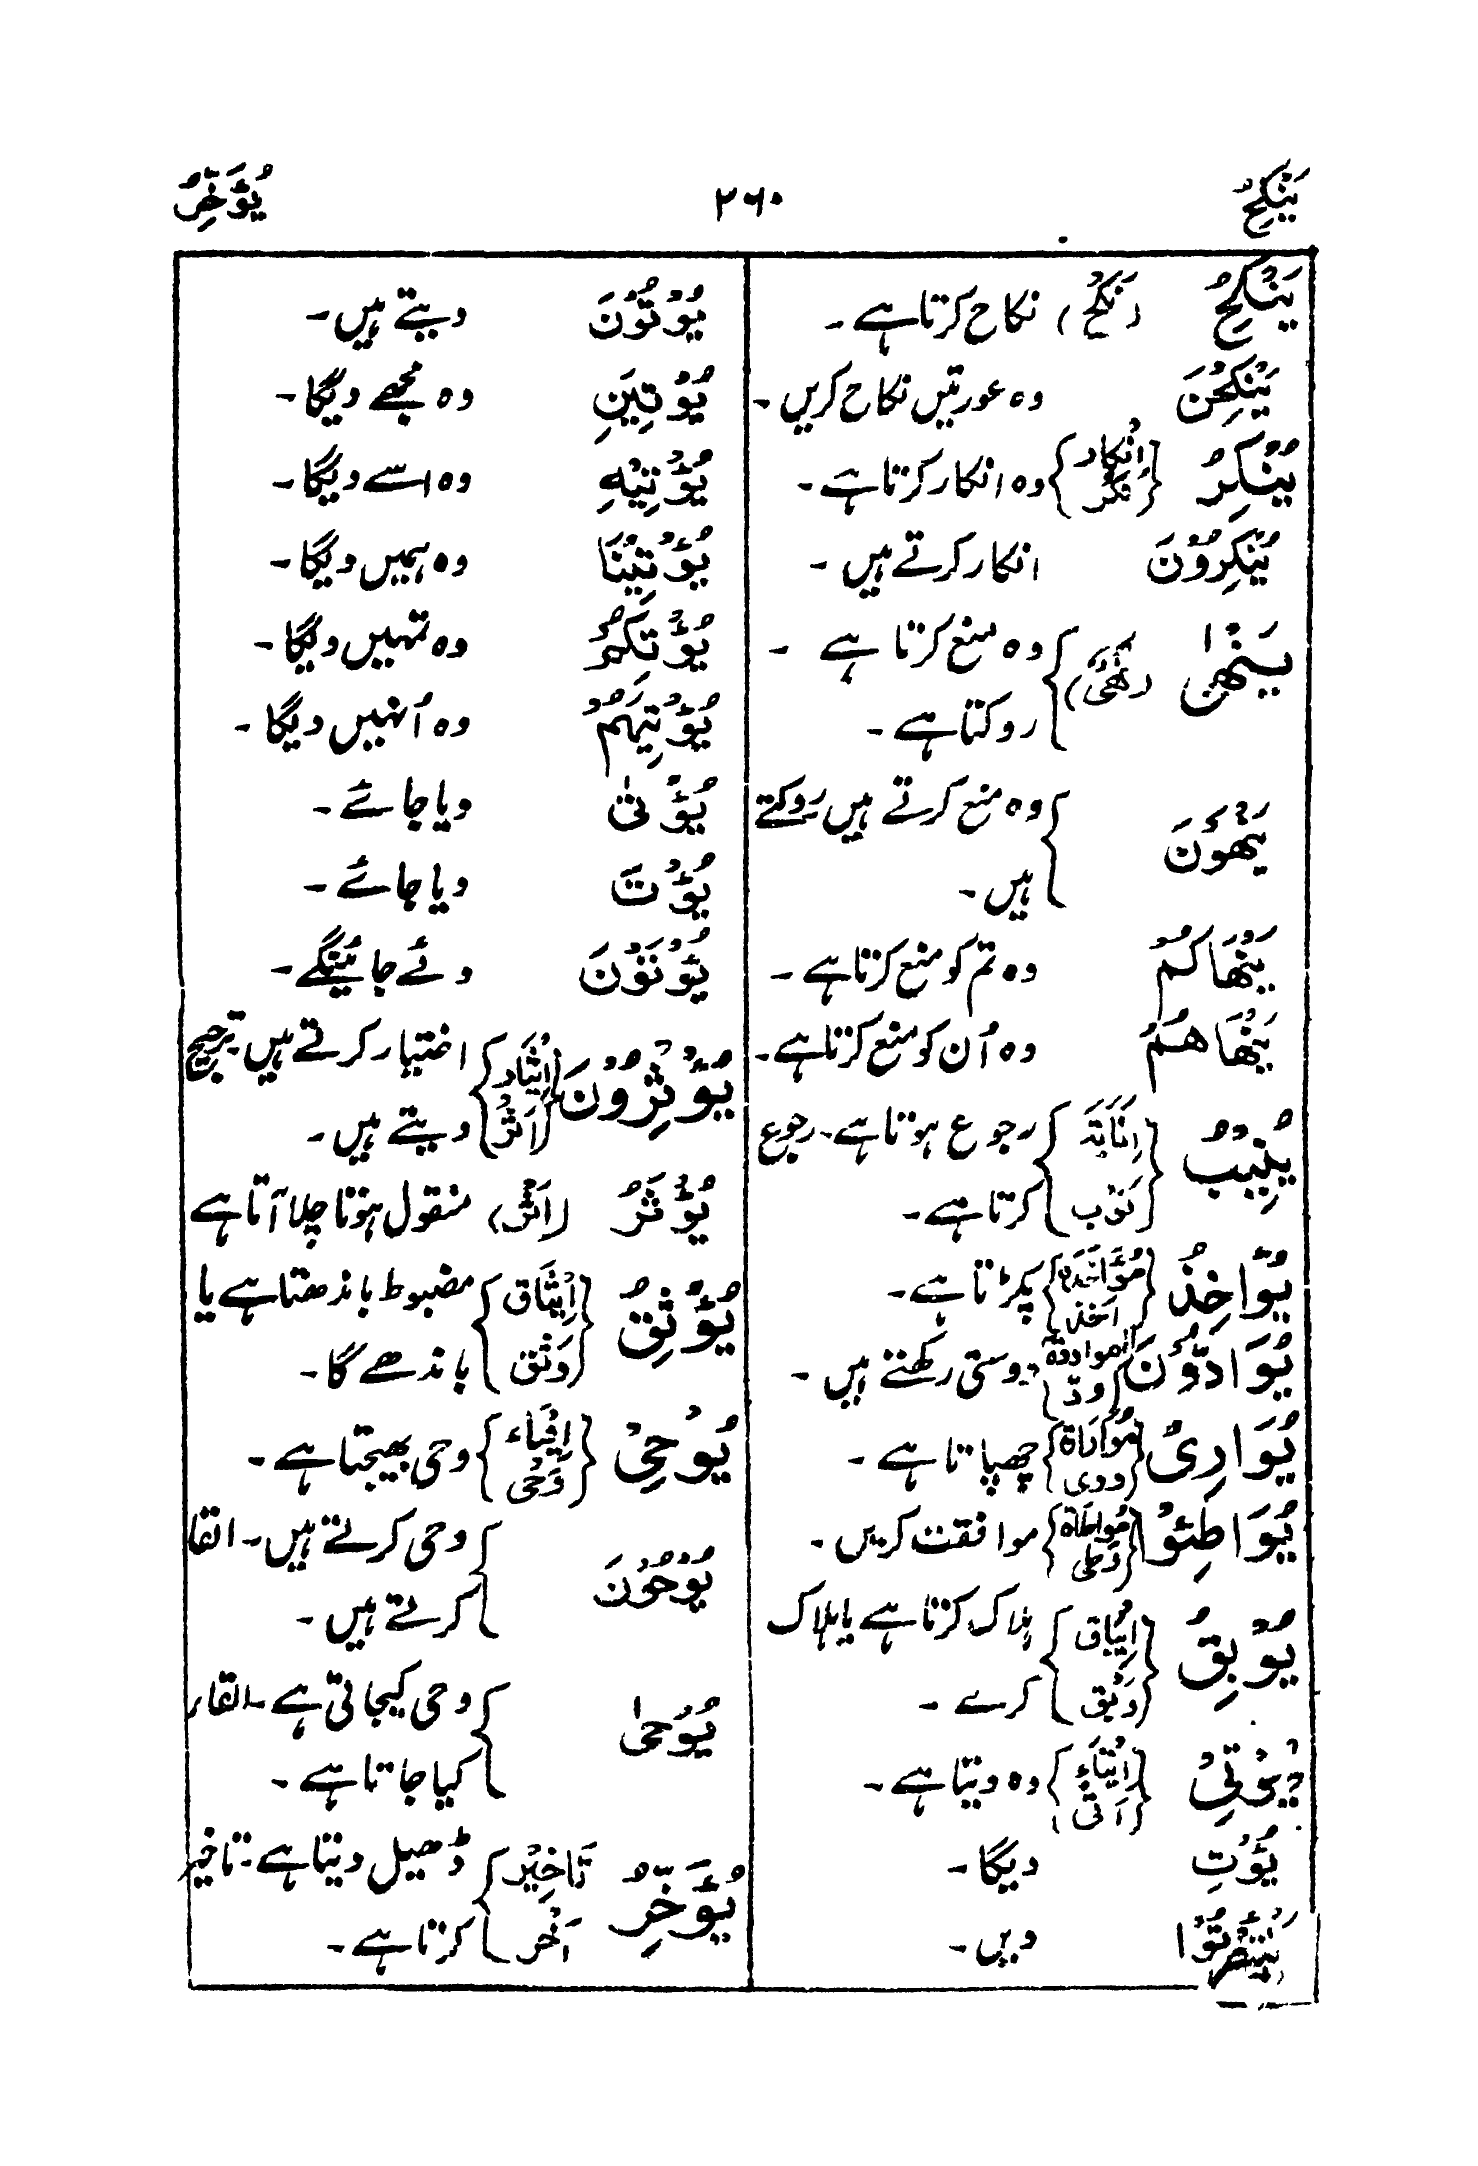 یَنْکِحُ ۲۶۰ یُؤَخِّرُ
یَنْکِحُ (نَکْحٌ) نکاح کرتا ہے۔
یَنْکِحْنَ وہ عورتیں نکاح کریں۔
یُنْکِرُ {اِنْکَار نکر} وہ انکار کرتا ہے۔
یُنْکِرُوْنَ انکار کرتے ہیں۔
یَنْهٰی (نَهْیٌ) {وہ منع کرتا ہے۔
روکتا ہے۔
یَنْهَوْنَ {وہ منع کرتے ہیں روکتے
ہیں۔
یَنْهَاکُمْ وہ تم کو منع کرتا ہے۔
یَنْهَاهُمْ وہ اُن کو منع کرتا ہے۔
یُنِیْبُ {اِنَابَة نَوْب} رجوع ہوتا ہے۔ رجوع
کرتا ہے۔
یُؤَاخِذُ {مُؤَاخَذَة اخذ} پکڑتا ہے۔
یُوَادُّوْنَ {موادّة ودّ} دوستی رکھتے ہیں۔
یُوَارِیْ {مُوَارَاة وری} چھپاتا ہے۔
یُوَاطِئُوْ {مُواطاة وطی} موافقت کریں۔
یُوْبِقُ {اِیْبَاق وَبْق} ہلاک کرتا ہے یا ہلاک
کرے۔
یُؤْتِیْ {اِیْتَاء اَتی} وہ دیتا ہے۔
یُؤْتِ دیگا۔
یُؤْتُوْا دیں۔
یُؤْتُوْنَ دیتے ہیں۔
یُؤْتِیَنِ وہ مجھے دیگا۔
یُؤْتِیْهِ وہ اسے دیگا۔
یُؤْتِیْنَا وہ ہمیں دیگا۔
یُؤْتِکُمْ وہ تمہیں دیگا۔
یُؤْتِیَهُمْ وہ اُنہیں دیگا۔
یُؤْتٰی دیا جائے۔
یُؤْتَ دیا جائے۔
یُؤْتَوْنَ دئے جائینگے۔
یُؤْثِرُوْنَ {اِیْثَار اَثْرٌ} اختیار کرتے ہیں ترجیح
دیتے ہیں۔
یُؤْثَرُ (اَثْرٌ) منقول ہوتا چلا آتا ہے
یُوْثِقُ {اِیْثَاق وَثْق} مضبوط باندھتا ہے یا
باندھے گا۔
یُوْحِیْ {اِیْحَاء وَحْی} وحی بھیجتا ہے۔
یُوْحُوْنَ {وحی کرتے ہیں۔ القا
کرتے ہیں۔
یُوْحٰی {وحی کیجاتی ہے۔ القاء
کیا جاتا ہے۔
یُؤَخِّرُ {تَاخِیْر اَخْر} ڈھیل دیتا ہے۔ تاخیر
کرتا ہے۔